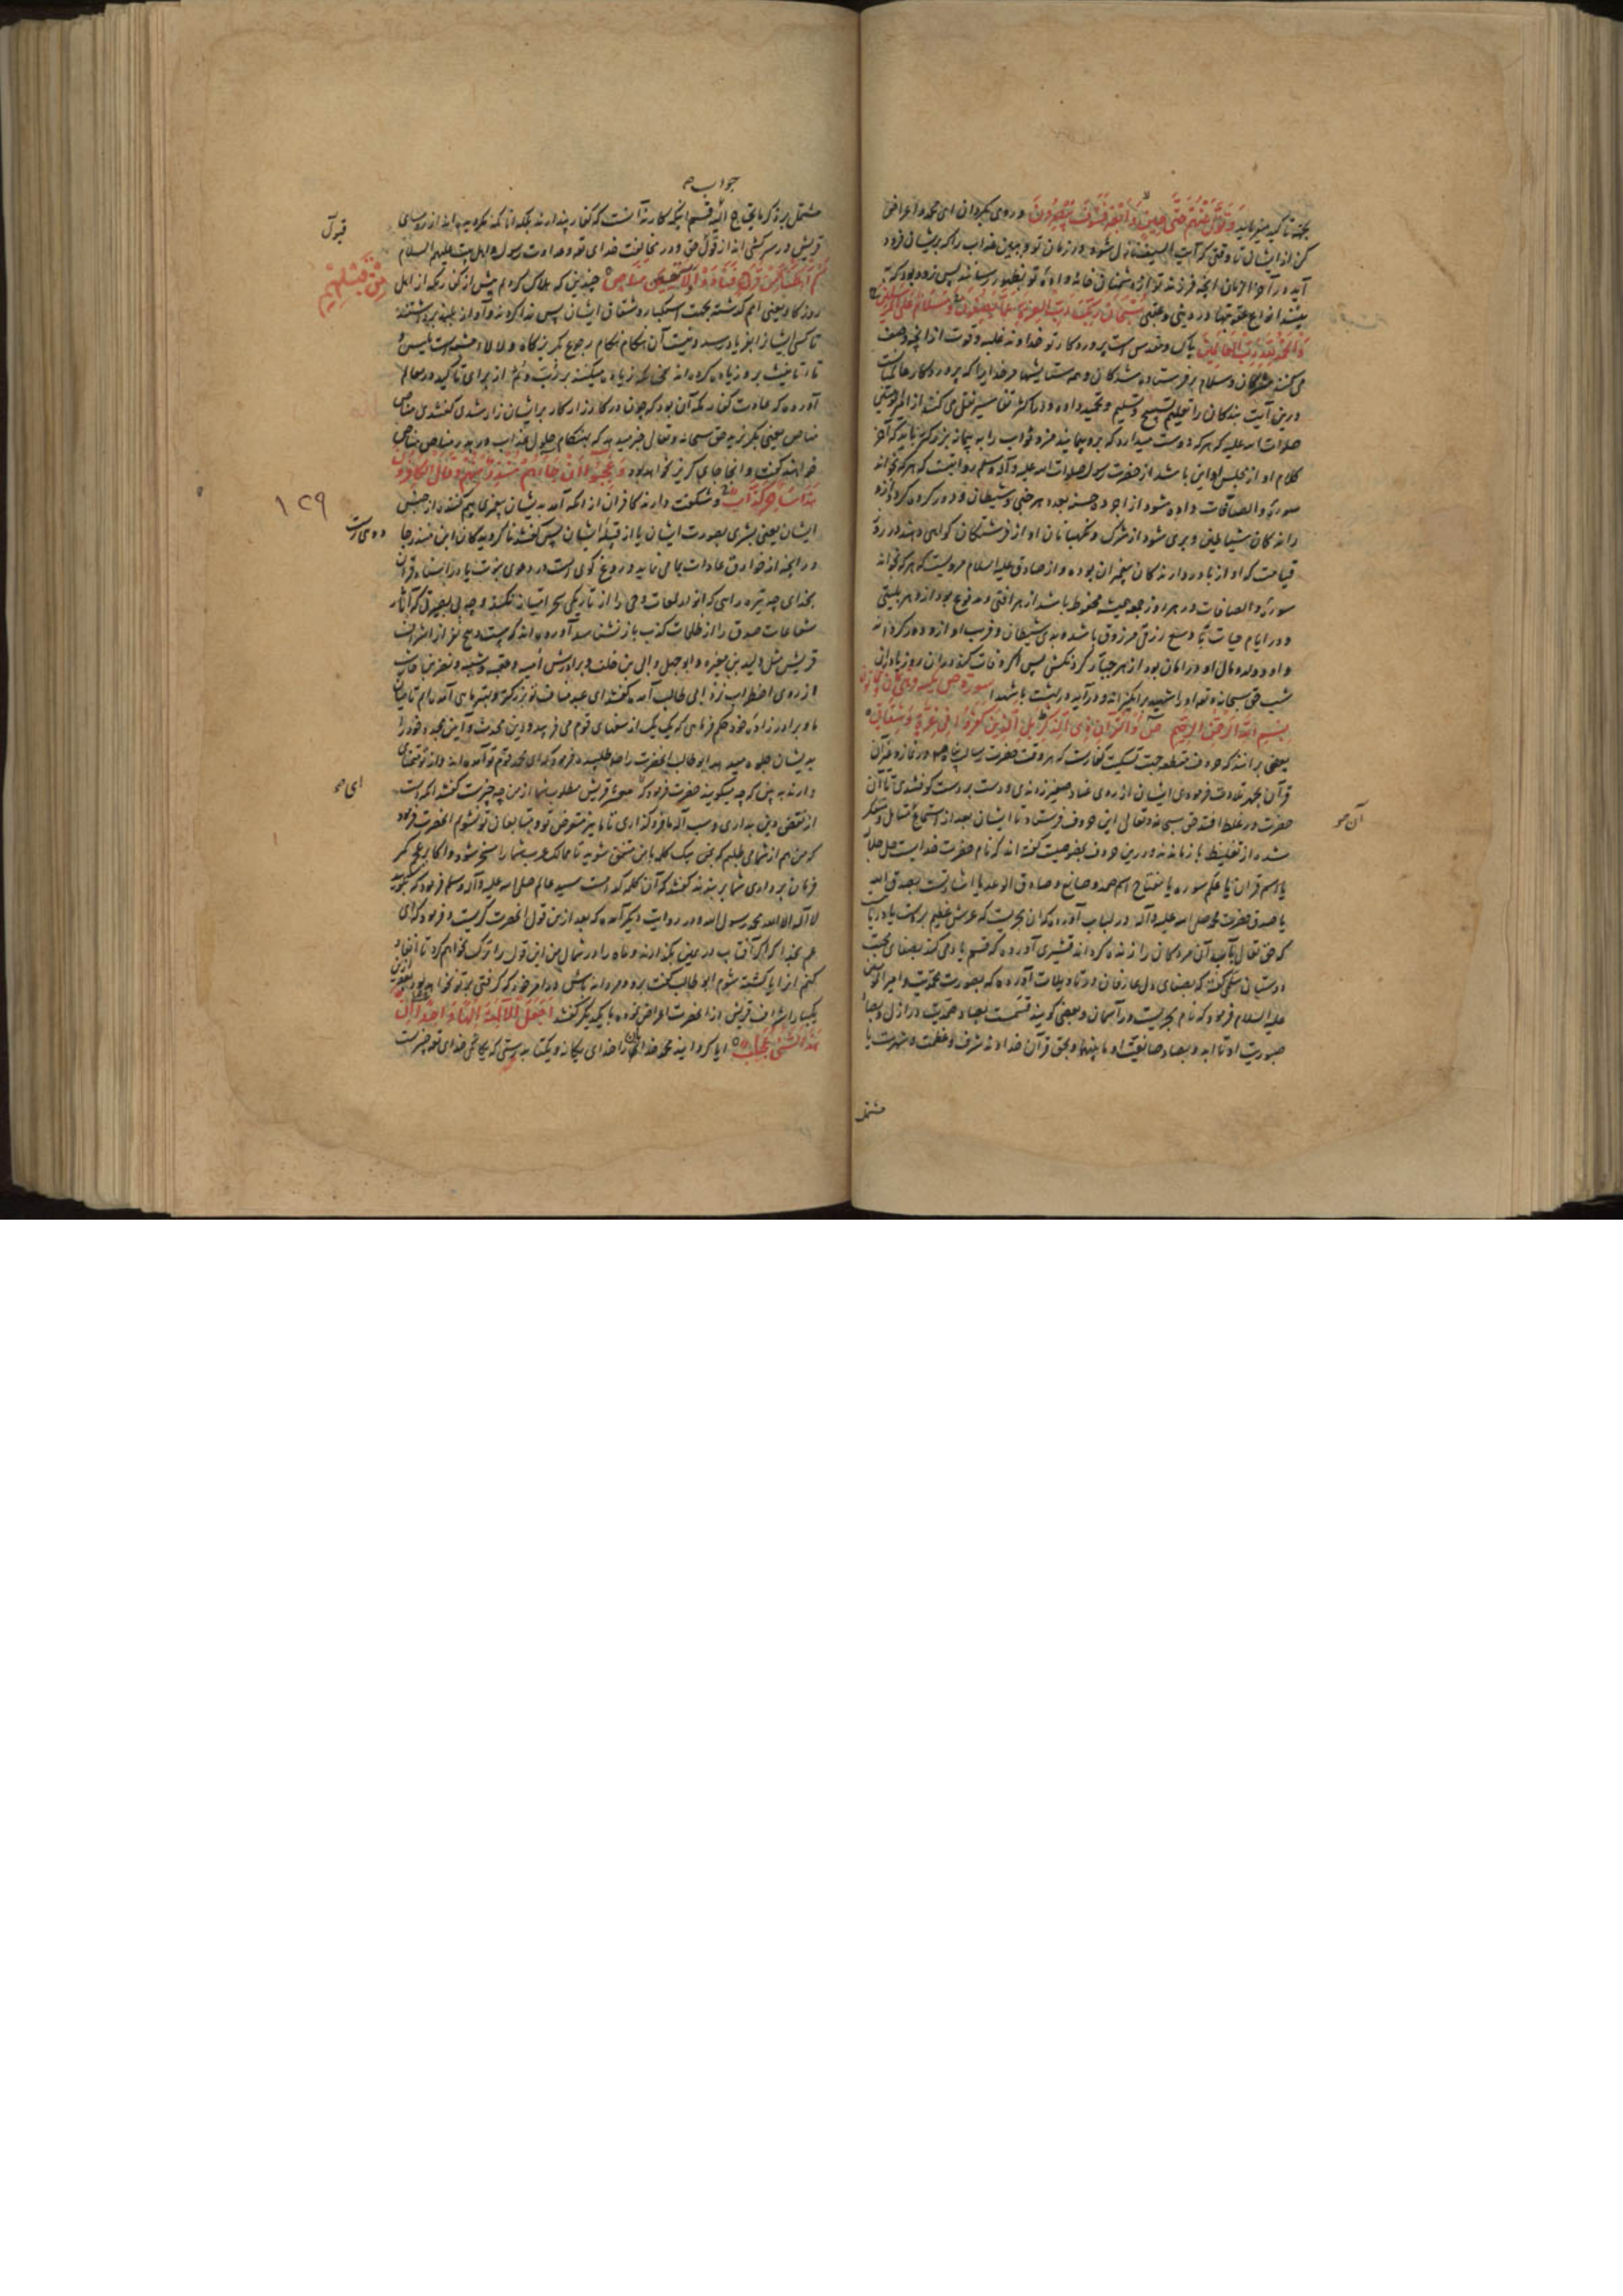 بجهة تاکید میفرماید وَتَوَلَّ عَنْهُمْ حَتَّى حِينٍ وَأَبْصِرْ فَسَوْفَ يُبْصِرُونَ و روی بگردان ای محمد و اعراض
کن از ایشان تا وقتی که آیت السیف نازل شود در زمان تو و ببین عذاب را که بر ایشان فرود
آید در آخر الزمان
بینند انواع عقوبتها در دنیی و عقبی سُبْحَانَ رَبِّكَ رَبِّ الْعِزَّةِ عَمَّا يَصِفُونَ وَسَلَامٌ عَلَى الْمُرْسَلِينَ
وَالْحَمْدُ لِلَّهِ رَبِّ الْعَالَمِينَ پاک و مقدس است پروردکار تو خداوند غلبه و قوت از آنچه وصف
می کنند مشرکان و سلام بر فرستاده شدکان و همه ستایشها مر خدایرا که پروردکار عالمیانست
درین آیت بندکان را تعلیم تسبیح و تسلیم و تحمید داده و در اکثر تفاسیر نقل می کنند از امیر المؤمنین
صلوات الله علیه که هر که دوست میدارد که برو پیمایند مزد و ثواب را به پیمانه بزرکتر باید که آخر
کلام او از مجلس او این باشد از حضرت رسول صلوات الله علیه و آله و سلم روایتست که هر که بخواند
سورهٔ والصافات داده شود از اجر ده حسنه بعدد هر جنی و شیطان و دور کرده کردد ازو
رانده کان شیاطین و بری شود از شرک و نکهبانان او از فرشتکان کواهی دهند در روز
قیامت که او از باور دارندکان پیغمبران بوده و از صادق علیه السلام مرویست که هر که بخواند
سورهٔ والصافات در هر روز جمعه همیشه محفوظ باشد از هر آفتی و مدفوع بود ازو هر بلیتی
و در ایام حیات باوسع رزقی مرزوق باشد و بدی شیطان و فریب او ازو دور کرداند
و او و ولد و مال او در امان بود از هر جبار کردنکشی پس اکر وفات کند در آن روز یا در آن
شب حق سبحانه و تعالی او را شهید برانکیزاند و در آید در بهشت با شهدا سورة ص مکیه وهی ثمان وثمانون
بِسْمِ اللَّهِ الرَّحْمَنِ الرَّحِيمِ ص وَالْقُرْآنِ ذِي الذِّكْرِ بَلِ الَّذِينَ كَفَرُوا فِي عِزَّةٍ وَشِقَاقٍ
بعضی برانند که حروف مقطعه جهت تسکیت کفارست که هر وقت حضرت رسالت پناه در نماز و غیر آن
قرآن بجهر تلاوت فرمودی ایشان از روی عناد صفیر زدندی و دست بر دست کوفتندی تا آن
حضرت در غلط افتد حق سبحانه و تعالی این حروف فرستاد تا ایشان بعد از استماع متأمل و متفکر
آن
شده از تغلیظ باز مانند و درین حروف بخصوصیت کفته اند که نام حضرت خدایست جل جلاله
یا اسم قرآن یا علم سوره یا مفتاح اسم صمد و صانع و صادق الوعد یا اشارتست بصدق الله
یا صدق حضرت محمد صلی الله علیه و آله و در لباب آورده که آن بحریست که عرش عظیم بر آنست یا دریاییست
که حق تعالی بآب آن مردکان را زنده کرداند قشیری آورده که قسم یاد می کند بصفای محبت
دوستان سلمی کفته که بصفای دل عارفان و در تاویلات آورده که بصورت محمدیست و امیر المؤمنین
علیه السلام فرمود که نام بحریست در آسمان و بعضی کویند قسمست بصاد صمدیت در ازل و بصاد
صبوریت او تا ابد و بصاد صانعیت او ما بینهما و بحق قرآن خداوند شرف و عظمت و شهرت یا
مشتمل
جواب
مشتمل بر ذکر
قبول
قریش در سرکشی اند از قبول حق و در مخالفت خدای تعالی و عداوت رسول و اهل بیت علیهم السلام
كَمْ أَهْلَكْنَا مِنْ قَبْلِهِمْ مِنْ قَرْنٍ فَنَادَوْا وَلَاتَ حِينَ مَنَاصٍ چندین که هلاک کردیم پیش از کفار مکه از اهل
مِنْ قَبْلِهِمْ
روزکار یعنی امم کذشته بجهت استکبار و شقاق ایشان پس ندا کردند و آواز بلند برداشتند
تا کسی ایشانرا بفریاد رسد و نیست آن هنکام هنکام رجوع کریزکاه و لا لا مشبهه بلیس و
تاء تانیث برو زیاده کرده اند چنانچه زیاده میکنند بر رب و ثم از برای تاکید در معالم
آورده که عادت کفار مکه آن بود که چون در کارزار کار بر ایشان زار شدی کفتندی مناص
مناص یعنی بکریزید حق سبحانه و تعالی خبر میدهد که بهنکام حلول عذاب در بدر مناص مناص
خواهند کفت و آنجا جای کریز نخواهد بود وَعَجِبُوا أَنْ جَاءَهُمْ مُنْذِرٌ مِنْهُمْ وَقَالَ الْكَافِرُونَ
هَذَا سَاحِرٌ كَذَّابٌ و شکفت دارند کافران از آنکه آمد بدیشان پیغمبری بیم کننده از جنس
۱۲۹
ایشان یعنی بشری بصورت ایشان یا از قبیلهٔ ایشان پس کفتند ناکرویدکان این منذر جادوست
دویست
در آنچه از خوارق عادات بما می نماید و دروغ کوی است در دعوی نبوت یا در اسناد قرآن
بخدای چه تیره رایی که انوار لمعات وحی را از تاریکی سحر امتیاز نکند و چه بی بصیرتی که آثار
شعاعات صدق را از ظلمات کذب باز نشناسد آورده اند که بیست و پنج نفر از اشراف
قریش مثل ولید بن مغیره و ابو جهل و ابی بن خلف و برادرش امیه و عتبه و شیبه و نضر بن حارث
از روی اضطراب نزد ابی طالب آمده کفتند ای عبد مناف تو بزرکتر و مهتر مایی آمده ایم تا میان
ما و برادر زادهٔ خود حکم فرمایی که یک یک از سفهای قوم می فریبد و دین محدث و آیین مجدد خود را
بدیشان جلوه میدهد ابو طالب آنحضرت را طلبید و فرمود که ای محمد قوم تو آمده اند و از تو تمنای
دارند ببین که چه میکویند حضرت فرمود که معشر قریش مطلوب شما از من چه چیزست کفتند آنکه دست
ای
از نقض دین ما بداری و سب آلهه ما فرو کذاری تا ما نیز متعرض تو و متابعان تو نشویم آنحضرت فرمود
که من هم از شما می طلبم که بمن بیک کلمه با من متفق شوید تا ممالک عرب شما را مسخر شود و اکابر عجم کمر
فرمان برداری شما بر بندند کفتند که آن کلمه کدامست سید عالم صلی الله علیه و آله و سلم فرمود که بکویید
لا اله الا الله محمد رسول الله و در روایت دیکر آمده که بعد از من قول آنحضرت کریست و فرمود که ای
عم بخدا که اکر آفتاب در یمین من نهند و ماه را در شمال من این قول را ترک نخواهم کرد تا انفاذ
کنم آنرا یا کشته شوم ابو طالب کفت برو
یکبار اشراف قریش از آنحضرت اعراض نموده با یکدیکر کفتند أَجَعَلَ الْآلِهَةَ إِلَهًا وَاحِدًا إِنَّ
هَذَا لَشَيْءٌ عُجَابٌ آیا کردانید محمد خدایان را خدای یکانه و یکتا بدرستی که یکانکی خدای تعالی چیزیست